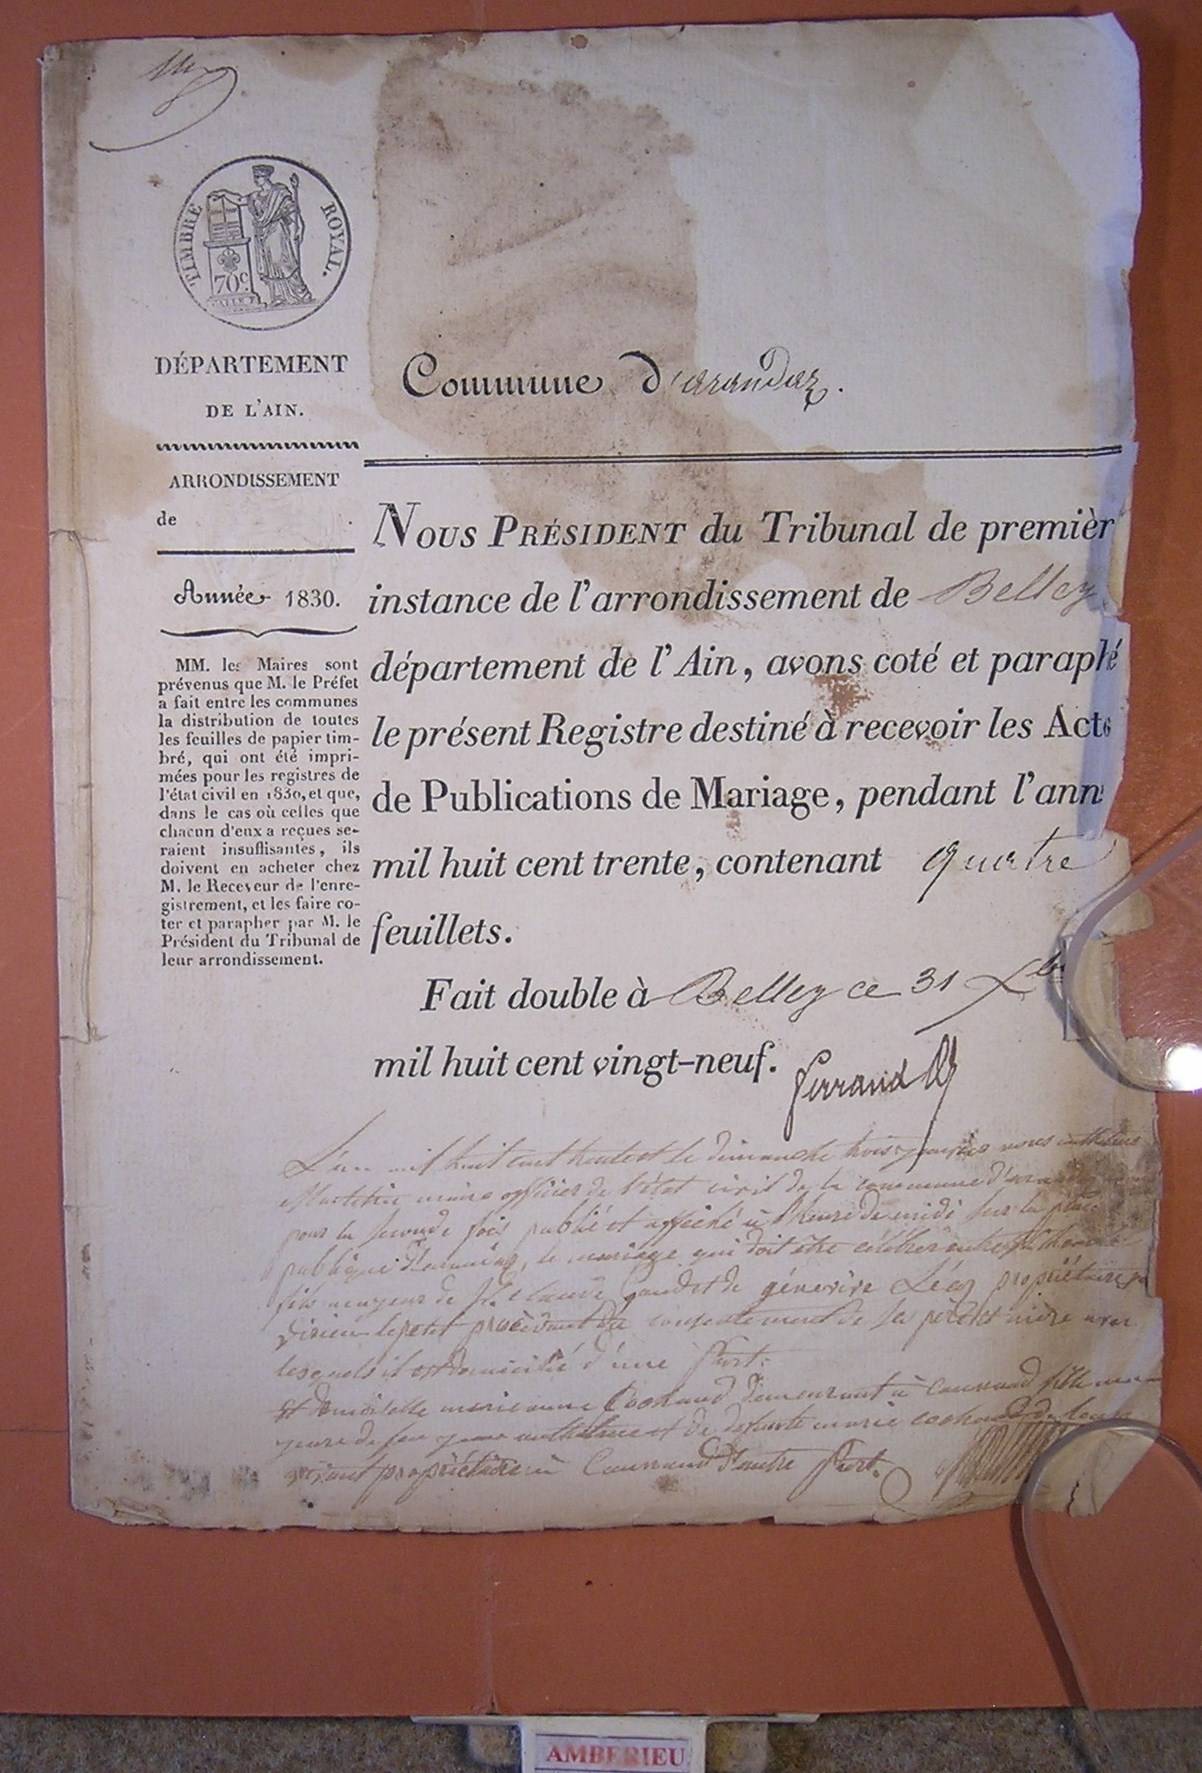 TIMBRE ROYAL.
70c
DÉPARTEMENT
DE L'AIN.
ARRONDISSEMENT
de .
Année 1830.
MM. les Maires sont
prévenus que M. le Préfet
a fait entre les communes
la distribution de toutes
les feuilles de papier tim-
bré, qui ont été impri-
mées pour les registres de
l'état civil en 1830, et que,
dans le cas où celles que
chacun d'eux a reçues se-
raient insuffisantes, ils
doivent en acheter chez
M. le Receveur de l'enre-
gistrement, et les faire co-
ter et parapher par M. le
Président du Tribunal de
leur arrondissement.
Commune d'arandaz.
Nous Président du Tribunal de premièr
instance de l'arrondissement de Belley
département de l'Ain, avons coté et paraphé
le présent Registre destiné à recevoir les Acte
de Publications de Mariage, pendant l'ann
mil huit cent trente, contenant quatre
feuillets.
Fait double à Belley ce 31 Xbre
mil huit cent vingt-neuf. Ferrand
L'an mil huit cent trente et le dimanche trois janvier nous
maire officier de l'état civil de la commune
pour la seconde fois publié et affiché à l'heure de midi sur la place
publique, le mariage qui doit être célébré entre
fils majeur de Claude et de propriétaire
procédant du consentement de ses père et mère avec
lesquels il est domicilié d'une part.
Et demoiselle marie anne demeurant à fille
et de defunte marie
propriétaire à d'autre part.
AMBERIEU